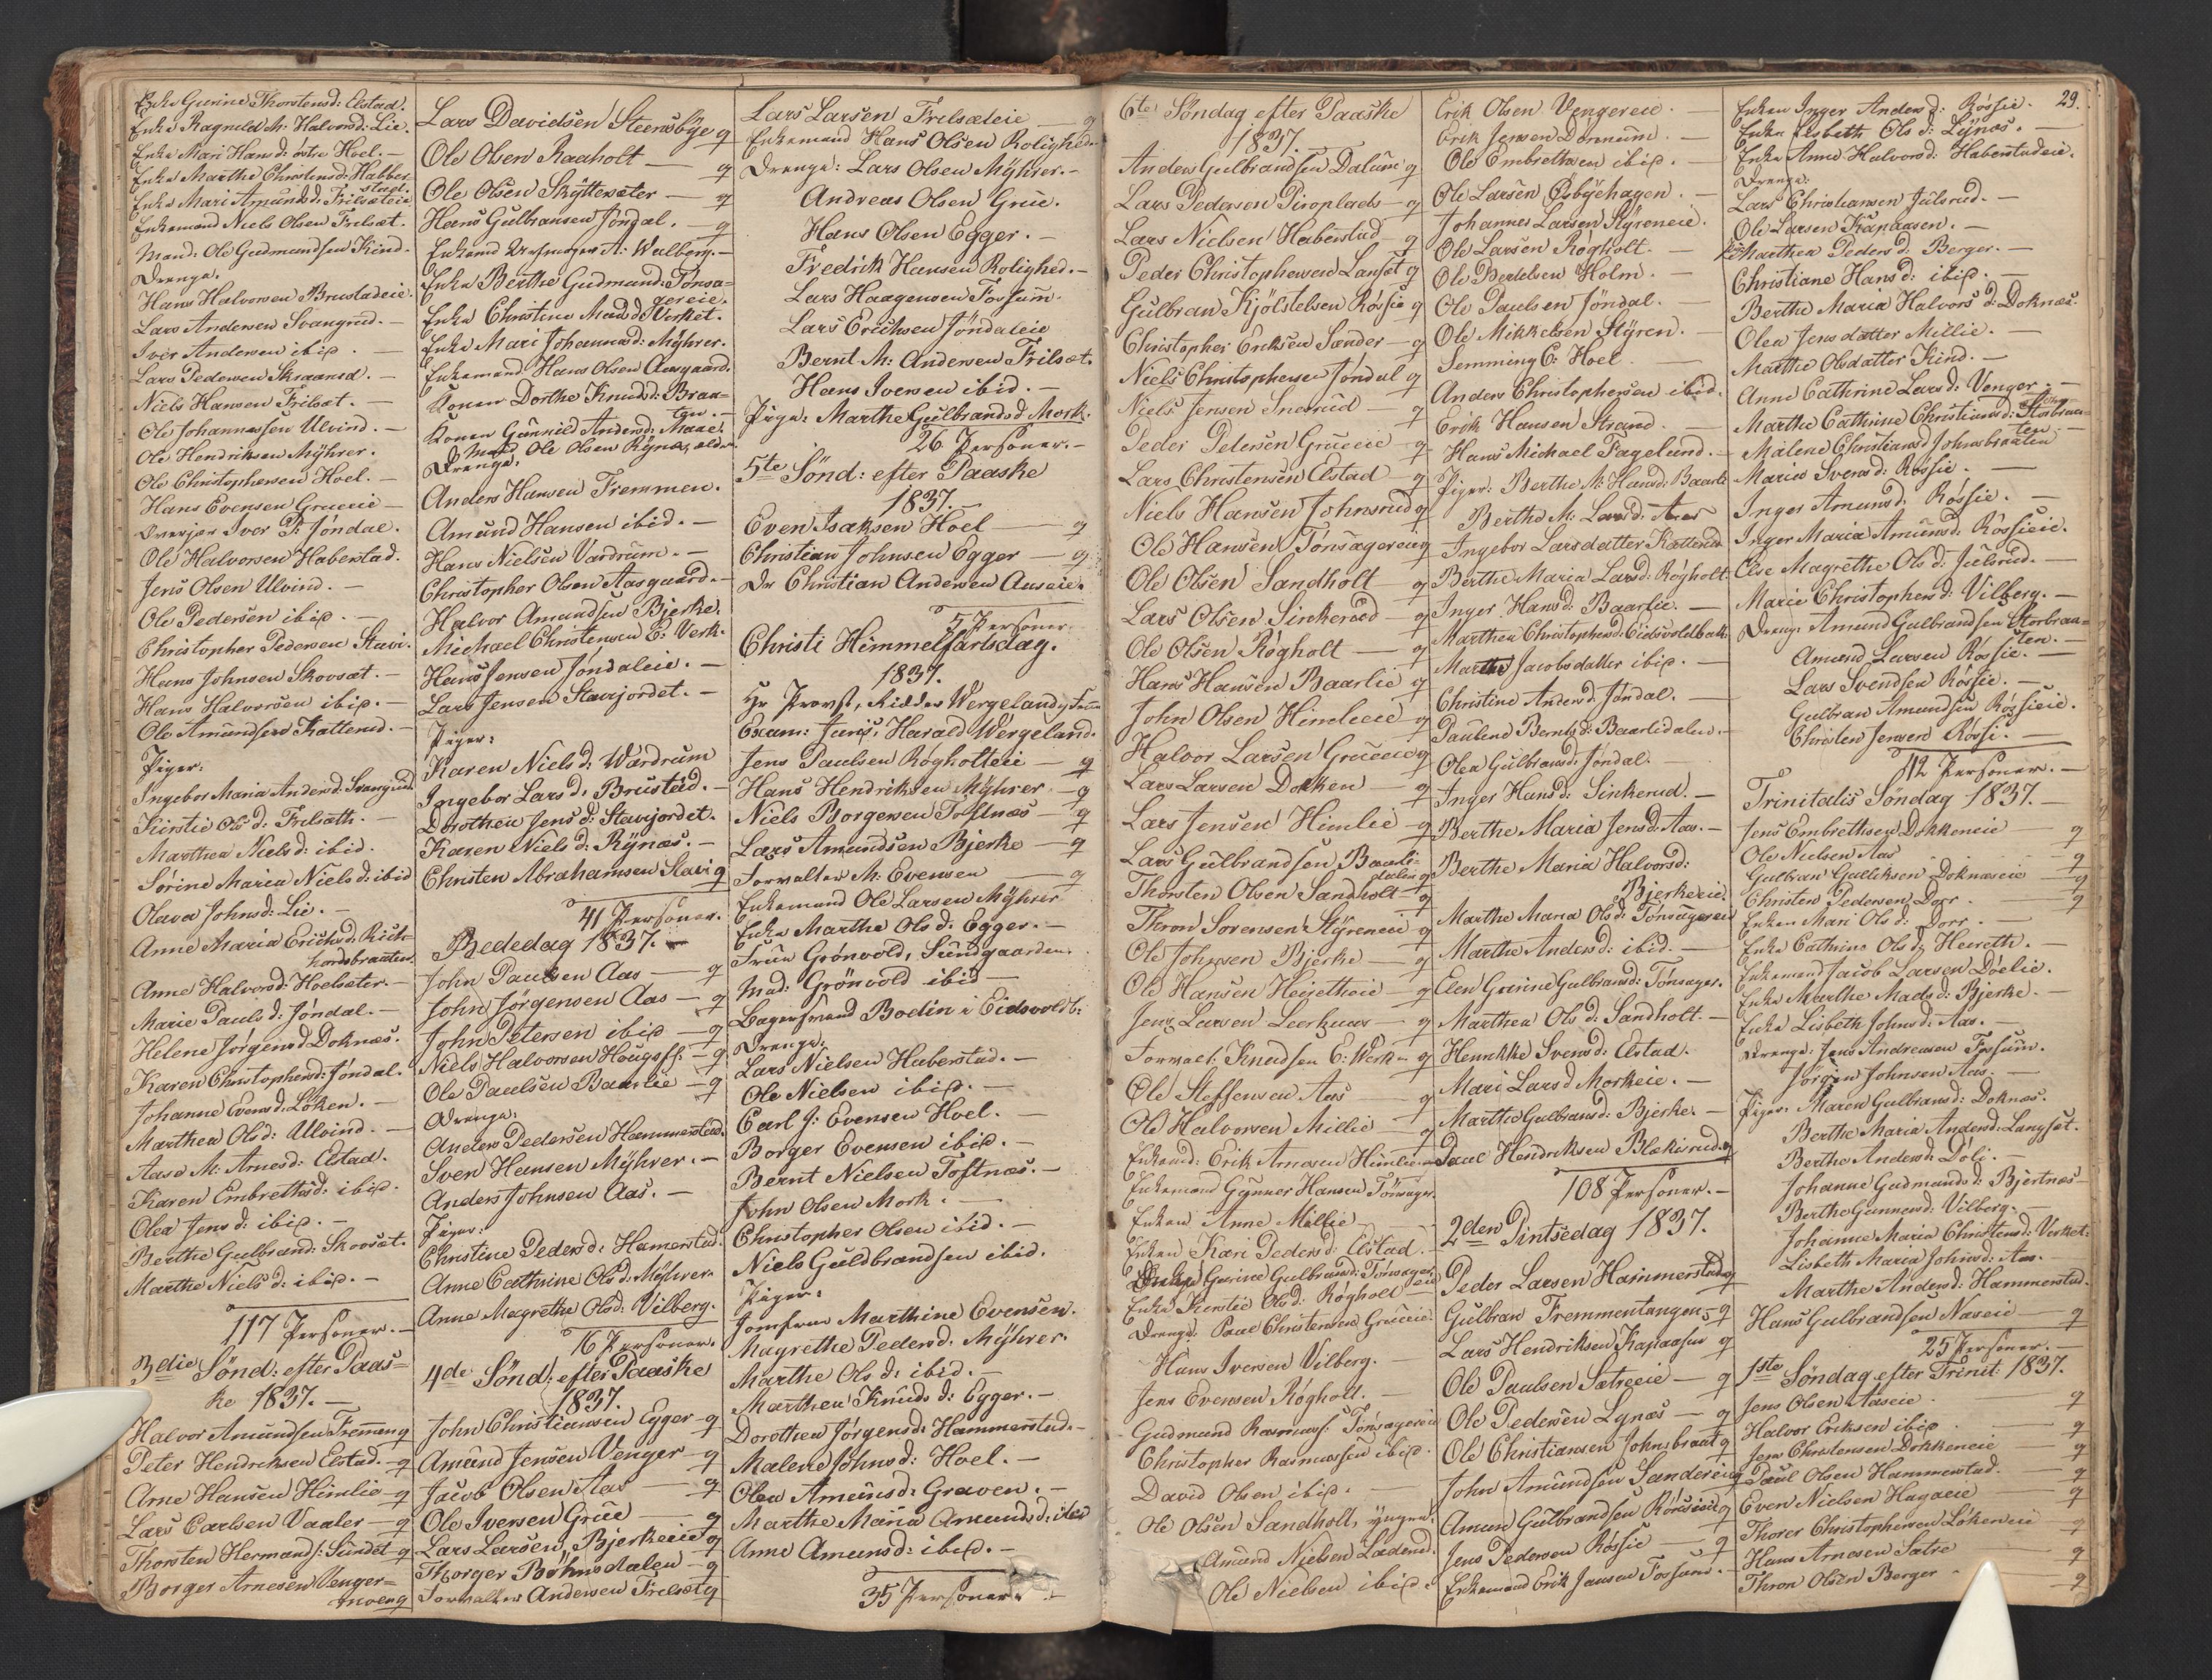 Enke Gurine Thorstensd: Elstad.
Enke Ragnild M. Halvorsd: Lie.
Enke Mari Hansd: østre Hoel. —
Enke Marthe Christensd: Habber-
stad.
Enke Mari Amundsd: Trilsæteie
Enkemand Niels Olsen Trilsæt.
Mand: Ole Gudmundsen Kind.
Drenge.
Hans Halvorsen Brustadeie.
Lars Andersen Svangrud. —
Iver Andersen ibid. —
Lars Pedersen Skraarud. —
Niels Hansen Trilsæt. —
Ole Johannessen Ulvind. —
Ole Hendriksen Myhrer.
Ole Christophersen Hoel. —
Hans Evensen Grueeie —
Iver P: Jøndal.
Ole Halvorsen Haberstad.
Jens Olsen Ulvind. —
Ole Pedersen ibid. —
Christopher Pedersen Stavi.
Hans Johnsen Skovsæt. —
Hans Halvorsen ibid. —
Ole Amundsen Katterud. —
Piger:
Ingebor Maria Andersd: Svangrud.
Kirstie Ols d: Trilsæth. —
Marthea Niels d: ibid.
Sørine Maria Niels d: ibid
Olava Johnsd: Lie. —
Anne Maria Erichsd: Rick-
hordsbraaten.
Anne Halvorsd: Hoelsæter. —
Marie Pauls d: Jøndal. —
Helene Jørgensd: Doknæs.
Karen Christophersd: Jøndal.
Johanne Evensd: Løken. —
Marthea Olsd: Ulvind. —
Aase M. Arnesd: Elstad.
Karen Embrethsd: ibid.
Olea Jensd: ibid. —
Berthe Gulbrand: Skovsæt.
Marthe Niels d: ibid. —
117 Personer. —
3die Sønd: efter Paas-
ke 1837. —
Halvor Amundsen Fremmen g
Peter Hendriksen Elstad. — g
Arne Hansen Himlie — g
Lars Carlsen Vaaler — g
Thorsten Hermands: Sundet g
Borger Arnesen Venger-
moen g
Lars Davidsen Steensbye g
Ole Olsen Raaholt — g
Ole Olsen Skyttesæter — g
Hans Gulbransen Jøndal. — g
Enkemd A: Walberg. —
Enke Berthe Gudmunds: Tønsa-
gereie.
Enke Christine Mads d Verket.
Enke Mari Johannesd: Myhrer.
Enkemand Hans Olsen Aasgaard.
Konen Dorthe Knudsd: Braa-
ten. —
Konen Gunnild Andersd:
Mand Ole Olsen Rynæs, ældre
Drenge.
Anders Hansen Fremmen.
Amund Hansen ibid. —
Hans Nielsen Vardrum. —
Christopher Olsen Aasgaard. —
Halvor Amundsen Bjerke.
Michael Christensen E: Verk.
Hans Jensen Jøndaleie. —
Lars Jensen Stavijordet. —
Piger:
Karen Niels d: Wardrum
Ingebor Lars d: Brustad. —
Dorothea Jens d: Stavijordet.
Karen Niels d: Rynæs. —
Christen Abrahamsen Stavi g
41 Personer.
Bededag 1837. —
John Paulsen Aas — g
John Jørgensen Aas — g
John Petersen ibid — g
Niels Halvorsen Hougsf: — g
Ole Paulsen Baarlie — g
Drenge:
Anders Pedersen Hammerstad.
Sven Hansen Myhrer. —
Anders Johnsen Aas. —
Piger:
Christine Peders d: Hamerstad.
Anne Cathrine Ols d: Myhrer.
Anne Magrethe Olsd: Vilberg.
16 Personer.
4de Sønd: efter Paaske
1837.
John Christiansen Egger — g
Amund Jensen Venger — g
Jacob Olsen Aas — g
Ole Iversen Grue — g
Lars Larsen, Bjerkeeie g
Thorger Bøhnsdalen — g
Forvalter Andersen Trilsæt g
Lars Larsen Trilsæteie — g
Enkemand Hans Olsen Rolighed.
Drenge: Lars Olsen Myhrer. —
Andreas Olsen Grue.
Hans Olsen Egger. —
Fredrik Hansen Rolighed. —
Lars Haagensen Fossum. —
Lars Ericksen Jøndaleie
Bernt M: Andersen Trilsæt.
Hans Iversen ibid. —
Pige: Marthe Gulbrandsd Mork.
26 Personer. —
5te Sønd: efter Paaske
1837. —
Even Isaksen Hoel — g
Christian Johnsen Egger — g
Dr Christian Andersen Auseie.
5 Personer.
Christi Himmelfartsdag.
1837.
Hr Provst, Ridder Wergeland,
Exam: Juris, Harald Wergeland.
Jens Paulsen Røgholteie — g
Hans Hendriksen Myhrer — g
Niels Borgersen Toftnæs — g
Lars Amundsen Bjerke — g
Forvalter M. Evensen — g
Enkemand Ole Larsen Myhrer
Enke Marthe Ols d. Egger. —
Frue Grönvold, Sundgaarden.
Mad. Grönvold ibid —
Bodin i Eidsvold b:
Drenge:
Lars Nielsen Haberstad. —
Ole Nielsen ibid. —
Carl J: Evensen Hoel. —
Borger Evensen ibid. —
Bernt Nielsen Toftnæs. —
John Olsen Mork. —
Christopher Olsen ibid. —
Niels Guldbrandsen ibid.
Piger:
Jomfrue Marthine Evensen.
Magrethe Peders d. Myhrer.
Marthe Ols d: ibid. —
Marthea Knuds d: Egger. —
Dorothea Jørgensd: Hammerstad. —
Malene Johnsd: Hoel. —
Olea Amunsd: Graven. —
Marthe Maria Amundsd: ibid
Anne Amunsd: ibid. —
35 Personer. —
29.
6te Søndag efter Paaske
1837. —
Anders Gulbrandsen Dalene g
Lars Pedersen Piroplads — g
Lars Nielsen Haberstad g
Peder Christophersen Langset g
Gulbran Kjølstelsen Røsjie g
Christopher Eriksen Sander — g
Niels Christophersen Jøndal g
Niels Jensen Snerud — g
Peder Petersen Grueeie — g
Lars Christensen Elstad — g
Niels Hansen Johnsrud g
Ole Hansen Tønsagereie g
Ole Olsen Sandholt — g
Lars Olsen Sinkerud — g
Ole Olsen Røgholt — g
Hans Hansen Baarlie g
John Olsen Himleeie — g
Halvor Larsen Grueeie g
Lars Larsen Dokken — g
Lars Jensen Himlie — g
Lars Gulbrandsen Baarli-
dalen g
Thorsten Olsen Sandholt — g
Thron Sørensen Styreneie g
Ole Johnsen Bjerke — g
Ole Hansen — g
Jens Larsen — g
Forvalt: Knudsen E: Værk — g
Ole Steffensen Aas — g
Ole Halvorsen Millie — g
Enkemd: Erik Arnesen Himlie —
Enkemand Gunner Hansen Tønsager.
Enken Anne Millie —
Enken Kari Peders d: Elstad. —
Gurine Gulbrand: Tønsager-
eie
Enke Kirstie Ols d. Røgholt —
Drenge: Paul Christensen Grueeie.
Hans Iversen Vilberg. —
Jens Evensen Røgholt. —
Gudmund Rasmuss: Tønsagereie
Christopher Rasmussen ibid.
David Olsen ibid. —
Ole Olsen Sandholt, yngre.
Amund Nielsen Laderud.
Ole Nielsen ibid.
Erik Olsen Vengereie. —
Erik Jensen Dorrnum. —
Ole Embrethsen ibid. —
Ole Larsen Østbyehagen. —
Johannes Larsen Styreneie.
Ole Larsen Røgholt. —
Ole Bertelsen Holm. —
Ole Paulsen Jöndal. —
Ole Mikkelsen Styren. —
Semming C: Hoel —
Anders Christophersen ibid. —
Erik Hansen Strand. —
Hans Michael Fagelund. —
Piger: Berthe M: Hansd: Baarli
Berthe M. Larsd: Aas
Ingebor Larsdatter Katterud
Berthe Maria Larsd: Røgholt.
Inger Hansd: Baarlie. —
Marthea Christophersd: Eidsvoldbak.
Marthe Jacobsdatter ibid. —
Christine Andersd: Jøndal. —
Pauline Berntsd: Baarlidalen. —
Olea Gulbrandsd: Jöndal. —
Inger Hansd: Sinkerud. —
Berthe Maria Jensd: Aas. —
Berthe Maria Halvorsd:
Bjerkeeie.
Marthe Maria Olsd: Tønsagereie
Marthe Andersd: ibid. —
Elen Gurine Gulbrandsd: Tønsager.
Marthea Ols d: Sandholt. —
Henrikke Svensd: Elstad.
Mari Larsd Morkeie. —
Marthe Gulbransd: Bjerke. —
Paul Hendriksen Blekisrud g
108 Personer. —
2den Pintsedag 1837.
Peder Larsen Hammerstad g
Gulbran Fremmentangen g
Lars Hendriksen Kapaasen g
Ole Paulsen Sætreeie — g
Ole Pedersen Lynæs — g
Ole Christiansen Johnsbraat g
John Amundsen Sandereie g
Amun Gulbrandsen Røisieie g
Jens Pedersen Røsjie — g
Enkemand Erik Jansen Fossund. —
Enken Inger Anders d: Rösjie. —
Enken Elsbeth Ols d: Lynæs. —
Enke Anne Halvorsd: Haberstadeie.
Drenge:
Lars Christiansen Julsrud. —
Ole Larsen Kapaasen. —
Marthea Peders d. Berger. —
Christiane Hansd: ibid. —
Berthe Maria Halvors d: Doknæs.
Olea Jensdatter Millie. —
Marthe Olsdatter Kind. —
Anne Cathrine Larsd: Venger. —
Marthe Cathrine Christiansd: Storbraa-
ten —
Malene Christiansd Johnsbraaten
Marie Svensd: Røsjie. —
Inger Amunsd. Rösjie. —
Inger Maria Amunsd: Rösjieie.
Else Magrethe Olsd: Julsrud. —
Marie Christophersd: Vilberg. —
Dreng: Amund Gulbrandsen Storbraa-
ten. —
Amund Larsen Røsjie. —
Lars Svendsen Røsjie. —
Gulbran Amundsen Røsjieie.
Christen Jensen Røsji. —
42 Personer. —
Trinitatis Søndag 1837. —
Jens Embrethsen Dokkeneie — g
Ole Nielsen Aas — g
Gulbran Gulliksen Doknæseie — g
Christen Pedersen Dorr. — g
Enken Mari Ols d: Dorr. —
Enke Cathrine Ols d: —
Enkemand Jacob Larsen Döelie.
Enke Marthe Mads d: Bjerke. —
Enke Lisbeth Johnsd: Aas. —
Drenge: Jens Andreasen Fossum.
Jørgen Johnsen Aas. —
Piger: Maren Gulbransd: Doknæs.
Berthe Maria Andersd: Langset.
Berthe Andersd: Döli. —
Johanne Gudmundsd: Bjertnæs —
Berthe Gunnersd: Vilberg. —
Johanne Maria Christensd: Verket.
Lisbeth Maria Johnsd: Aas. —
Marthe Andersd: Hammerstad.
Hans Gulbrandsen Næseie — g
25 Personer. —
1ste Søndag efter Trinit: 1837.
Jens Olsen Aaseie. — g
Halvor Eriksen ibid — g
Jens Christensen Dokkeneie — g
Paul Olsen Hammerstad. — g
Even Nielsen Hagaeie — g
Thorer Christophersen Løkeneie — g
Hans Arnesen Sætre — g
Thron Olsen Berger — g